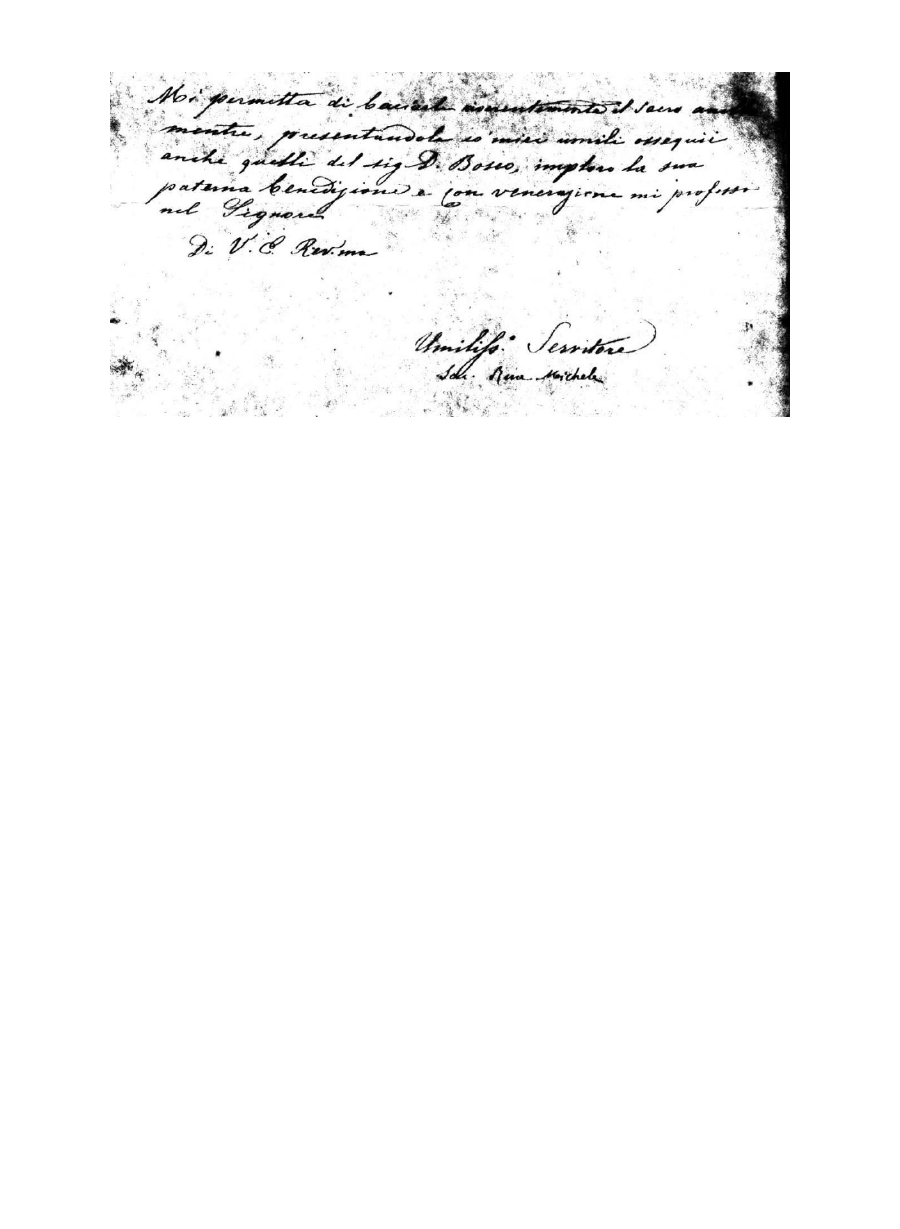 Mi permetta di baciarle riverentemente il sacro anello
mentre, presentandole co' miei umili ossequii
anche quelli del sig D. Bosco, imploro la sua
paterna benedizione e con venerazione mi professo
nel Signore
Di V. E. Rev.ma
Umiliss.o Servitore
Sac. Rua Michele